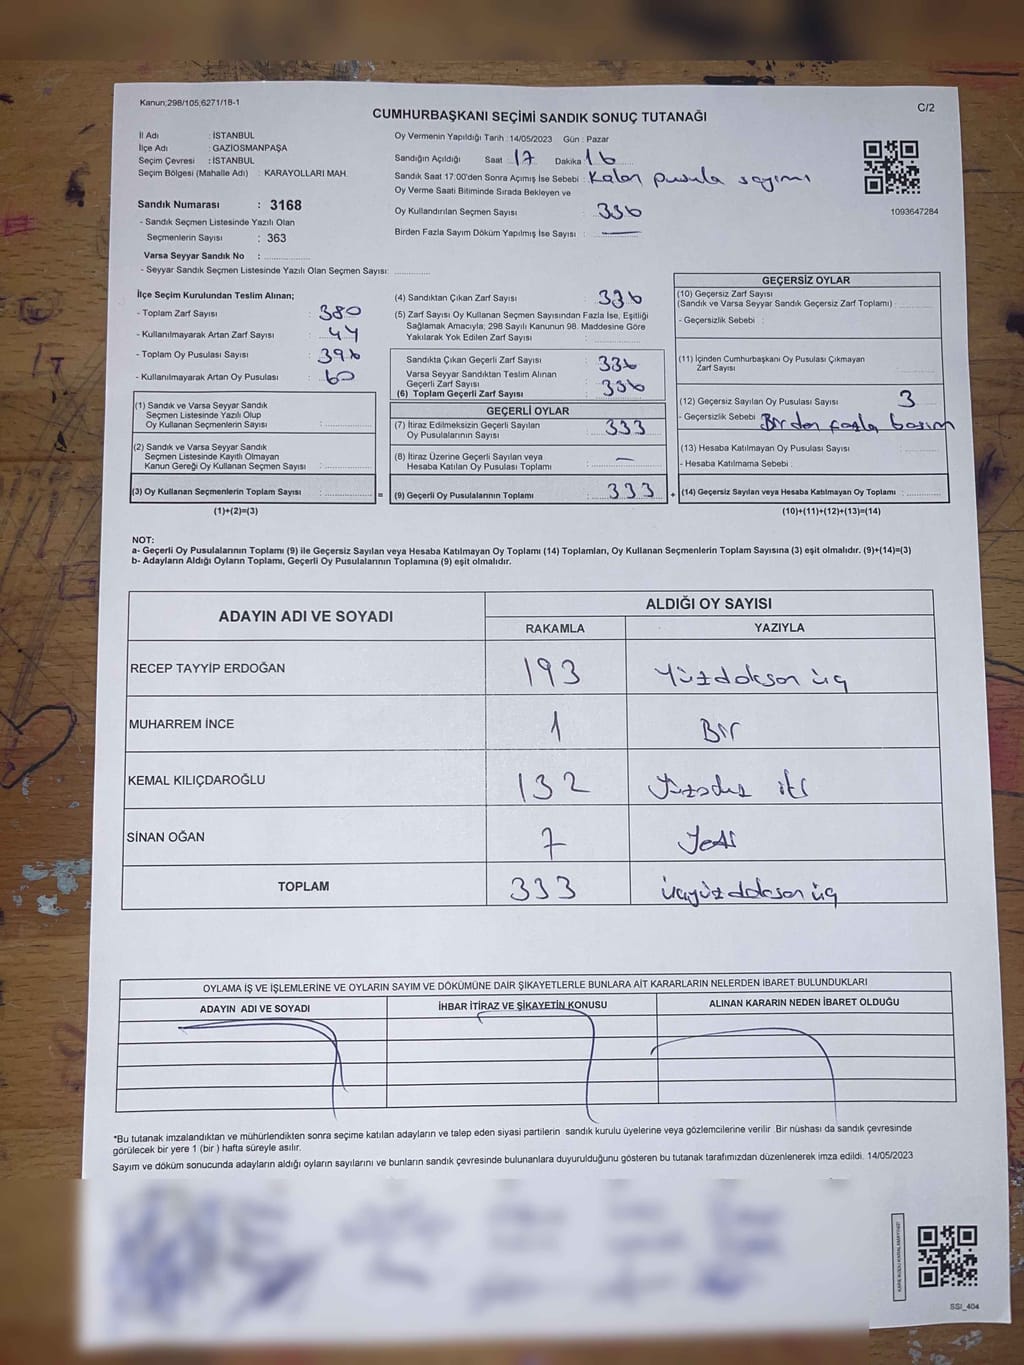 Kanun;298/105,6271/18-1
C/2
CUMHURBAŞKANI SEÇİMİ SANDIK SONUÇ TUTANAĞI
İl Adı : İSTANBUL
İlçe Adı : GAZİOSMANPAŞA
Seçim Çevresi : İSTANBUL
Seçim Bölgesi (Mahalle Adı) : KARAYOLLARI MAH.
Sandık Numarası : 3168
- Sandık Seçmen Listesinde Yazılı Olan
Seçmenlerin Sayısı : 363
Varsa Seyyar Sandık No :
- Seyyar Sandık Seçmen Listesinde Yazılı Olan Seçmen Sayısı:
Oy Vermenin Yapıldığı Tarih : 14/05/2023 Gün : Pazar
Sandığın Açıldığı Saat 17 Dakika 16
Sandık Saat 17:00'den Sonra Açımış İse Sebebi : Kalan pusula sayımı
Oy Verme Saati Bitiminde Sırada Bekleyen ve
Oy Kullandırılan Seçmen Sayısı 336
Birden Fazla Sayım Döküm Yapılmış İse Sayısı : —
1093647284
İlçe Seçim Kurulundan Teslim Alınan;
- Toplam Zarf Sayısı : 380
- Kullanılmayarak Artan Zarf Sayısı : 44
- Toplam Oy Pusulası Sayısı : 396
- Kullanılmayarak Artan Oy Pusulası : 60
(1) Sandık ve Varsa Seyyar Sandık
Seçmen Listesinde Yazılı Olup
Oy Kullanan Seçmenlerin Sayısı :
(2) Sandık ve Varsa Seyyar Sandık
Seçmen Listesinde Kayıtlı Olmayan
Kanun Gereği Oy Kullanan Seçmen Sayısı :
(3) Oy Kullanan Seçmenlerin Toplam Sayısı : =
(1)+(2)=(3)
(4) Sandıktan Çıkan Zarf Sayısı : 336
(5) Zarf Sayısı Oy Kullanan Seçmen Sayısından Fazla İse, Eşitliği
Sağlamak Amacıyla; 298 Sayılı Kanunun 98. Maddesine Göre
Yakılarak Yok Edilen Zarf Sayısı :
Sandıkta Çıkan Geçerli Zarf Sayısı : 336
Varsa Seyyar Sandıktan Teslim Alınan
Geçerli Zarf Sayısı
(6) Toplam Geçerli Zarf Sayısı : 336
GEÇERLİ OYLAR
(7) İtiraz Edilmeksizin Geçerli Sayılan
Oy Pusulalarının Sayısı : 333
(8) İtiraz Üzerine Geçerli Sayılan veya
Hesaba Katılan Oy Pusulası Toplamı : —
(9) Geçerli Oy Pusulalarının Toplamı : 333 +
GEÇERSİZ OYLAR
(10) Geçersiz Zarf Sayısı
(Sandık ve Varsa Seyyar Sandık Geçersiz Zarf Toplamı) :
- Geçersizlik Sebebi :
(11) İçinden Cumhurbaşkanı Oy Pusulası Çıkmayan
Zarf Sayısı :
(12) Geçersiz Sayılan Oy Pusulası Sayısı : 3
- Geçersizlik Sebebi : Birden fazla basım
(13) Hesaba Katılmayan Oy Pusulası Sayısı :
- Hesaba Katılmama Sebebi :
(14) Geçersiz Sayılan veya Hesaba Katılmayan Oy Toplamı :
(10)+(11)+(12)+(13)=(14)
NOT:
a- Geçerli Oy Pusulalarının Toplamı (9) ile Geçersiz Sayılan veya Hesaba Katılmayan Oy Toplamı (14) Toplamları, Oy Kullanan Seçmenlerin Toplam Sayısına (3) eşit olmalıdır. (9)+(14)=(3)
b- Adayların Aldığı Oyların Toplamı, Geçerli Oy Pusulalarının Toplamına (9) eşit olmalıdır.
ADAYIN ADI VE SOYADI ALDIĞI OY SAYISI
RAKAMLA YAZIYLA
RECEP TAYYİP ERDOĞAN 193 Yüzdoksan üç
MUHARREM İNCE 1 Bir
KEMAL KILIÇDAROĞLU 132 Yüzotuz iki
SİNAN OĞAN 7 Yedi
TOPLAM 333 üçyüzdoksan üç
OYLAMA İŞ VE İŞLEMLERİNE VE OYLARIN SAYIM VE DÖKÜMÜNE DAİR ŞİKAYETLERLE BUNLARA AİT KARARLARIN NELERDEN İBARET BULUNDUKLARI
ADAYIN ADI VE SOYADI İHBAR İTİRAZ VE ŞİKAYETİN KONUSU ALINAN KARARIN NEDEN İBARET OLDUĞU
*Bu tutanak imzalandıktan ve mühürlendikten sonra seçime katılan adayların ve talep eden siyasi partilerin sandık kurulu üyelerine veya gözlemcilerine verilir. Bir nüshası da sandık çevresinde
görülecek bir yere 1 (bir ) hafta süreyle asılır.
Sayım ve döküm sonucunda adayların aldığı oyların sayılarını ve bunların sandık çevresinde bulunanlara duyurulduğunu gösteren bu tutanak tarafımızdan düzenlenerek imza edildi. 14/05/2023
SSI_404